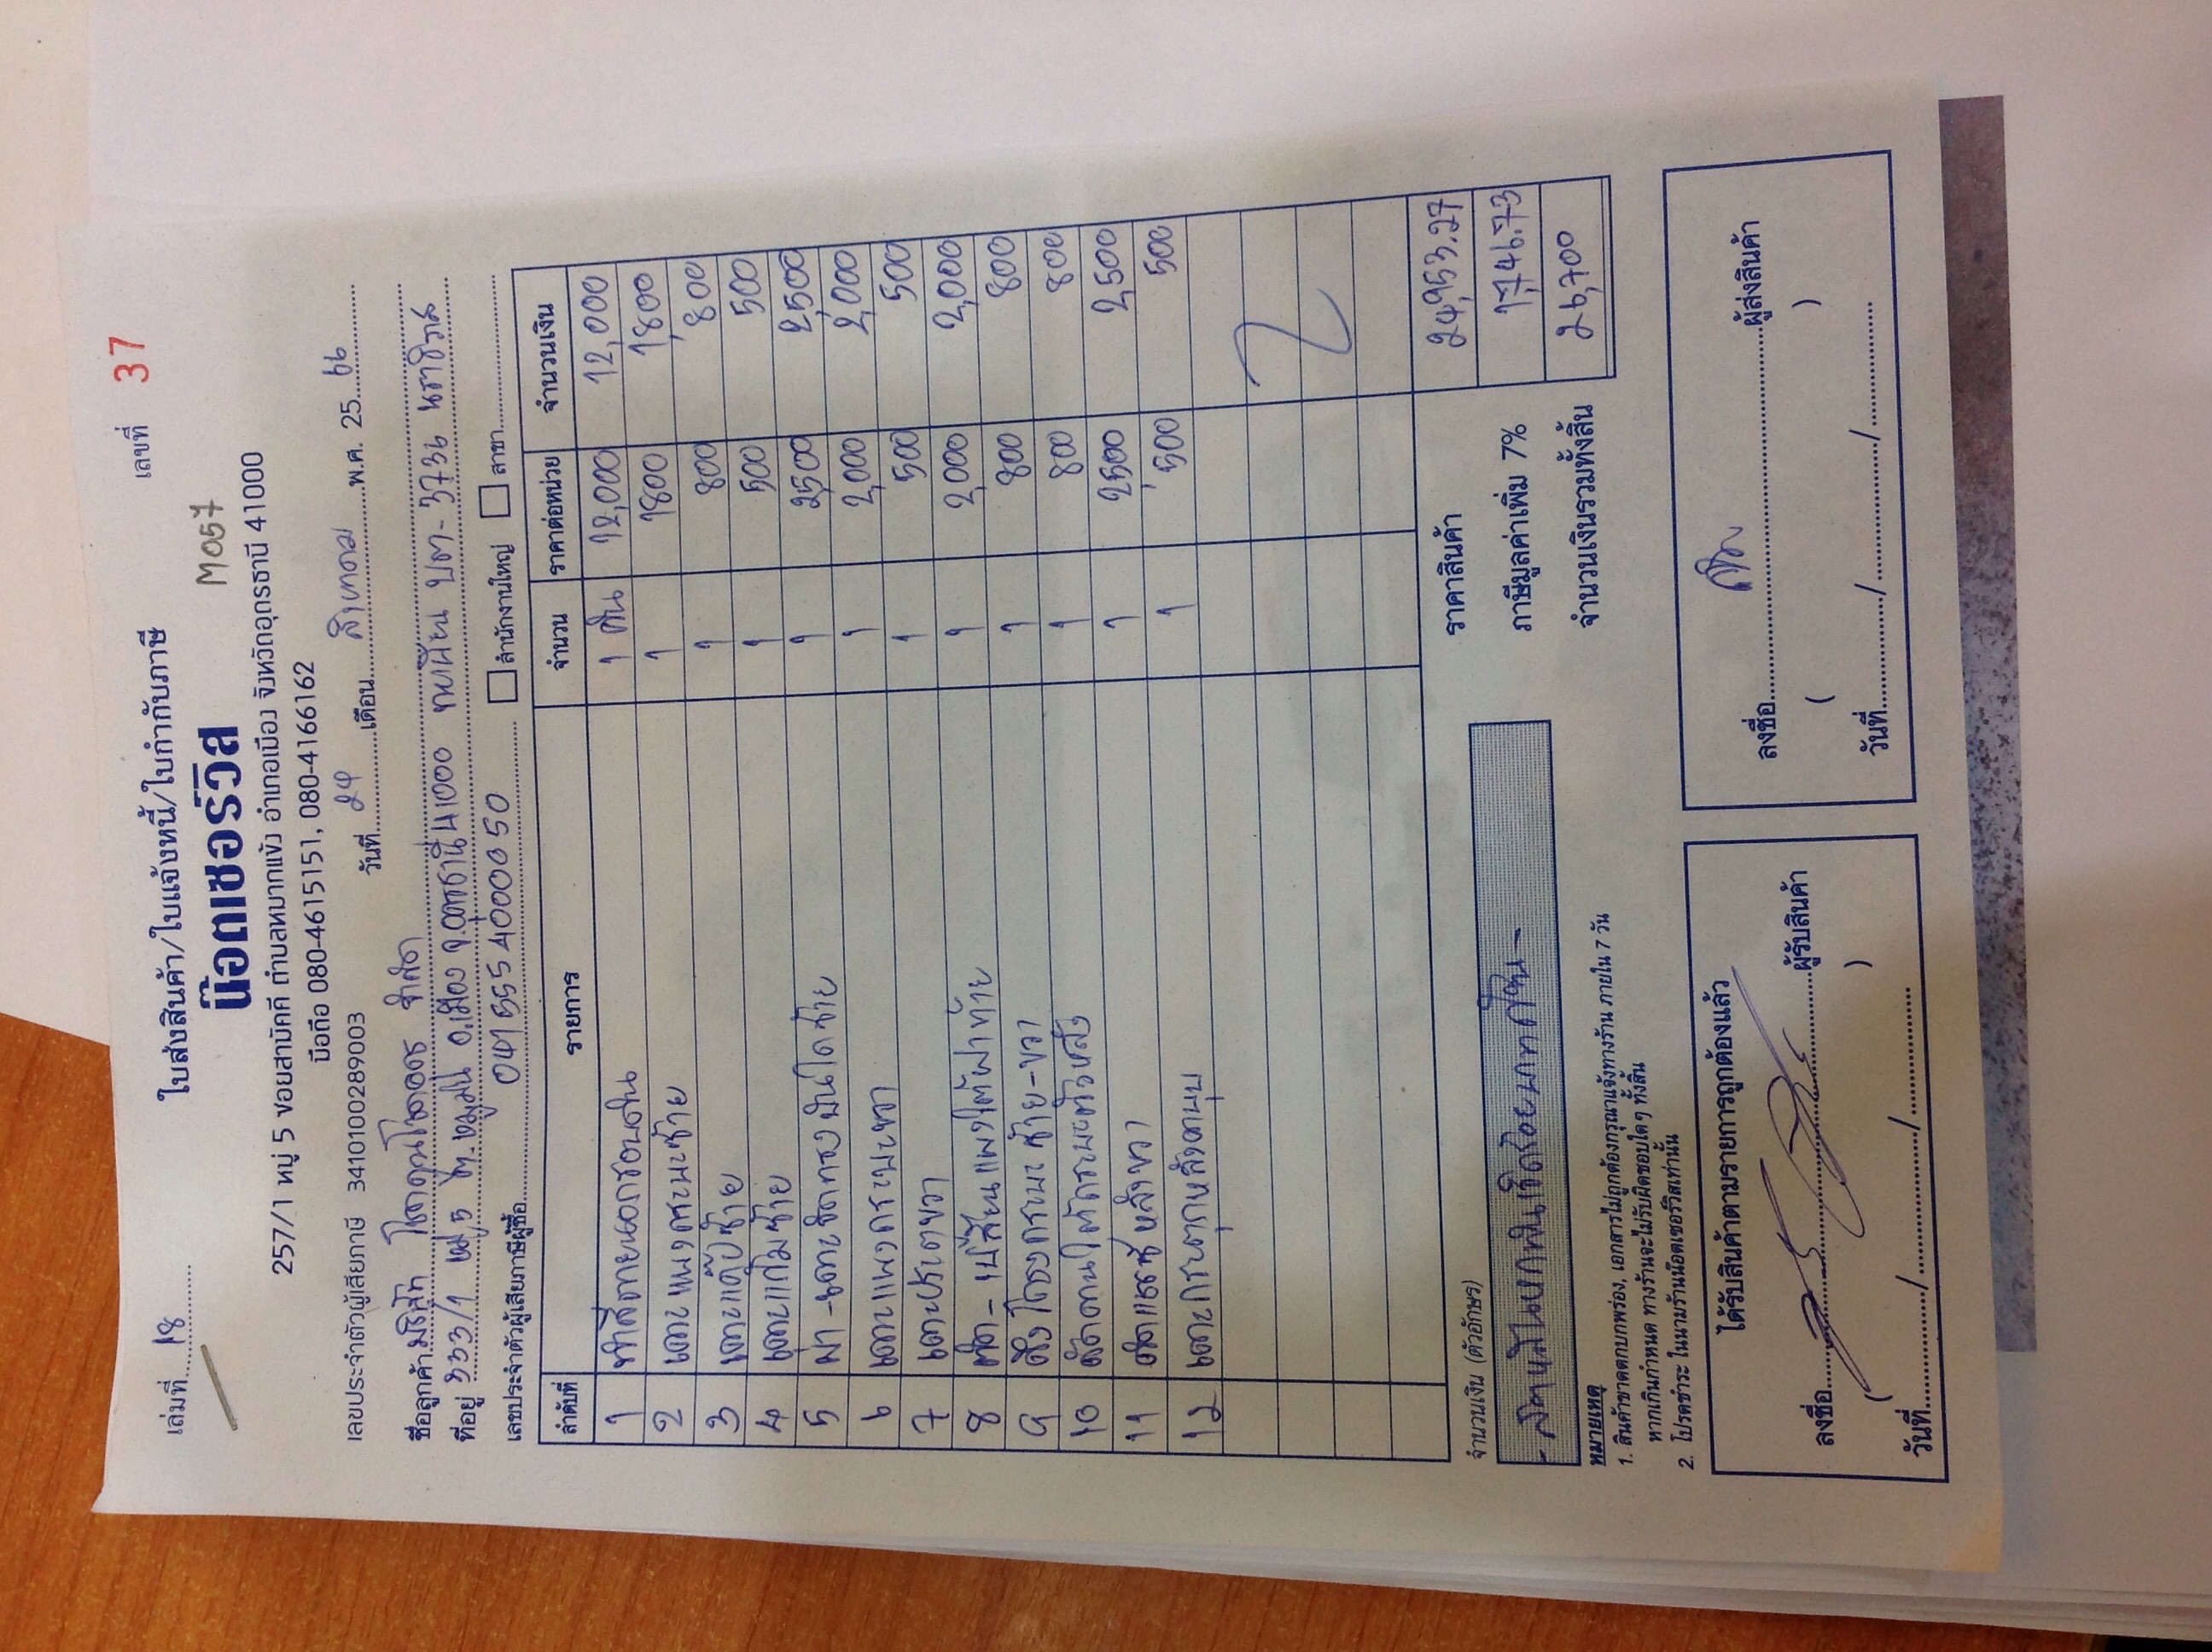 เล่มที่ 18 ใบส่งสินค้า/ใบแจ้งหนี้/ใบกำกับภาษี เลขที่ 37
น๊อตเซอร์วิส M057
257/1 หมู่ 5 ซอยสามัคคี ตำบลหมากแข้ง อำเภอเมือง จังหวัดอุดรธานี 41000
มือถือ 080-4615151, 080-4166162
เลขประจำตัวผู้เสียภาษี 3410100289003 วันที่ 24 เดือน สิงหาคม พ.ศ. 25 66
ชื่อลูกค้า บริษัท จำกัด
ที่อยู่ 333/1 หมู่ 5 ต.หมูม่น อ.เมือง จ.อุดรธานี 41000 ทะเบียน บต-3736 นราธิวาส
เลขประจำตัวผู้เสียภาษีผู้ซื้อ 0415554000050 สำนักงานใหญ่ สาขา
ลำดับที่ รายการ จำนวน ราคาต่อหน่วย จำนวนเงิน
1 ทำสีภายนอกรอบคัน 1 คัน 12,000 12,000
2 เคาะแผงกระบะซ้าย 1 1800 1,800
3 เคาะแค๊ปซ้าย 1 800 800
4 เคาะแก้มซ้าย 1 500 500
5 ผ่า-เคาะจัดทรงบันไดซ้าย 1 2,500 2,500
6 เคาะแผงกระบะขวา 1 2,000 2,000
7 เคาะประตูขวา 1 500 500
8 ตัด-เปลี่ยนแผงใต้ฝาท้าย 1 2,000 2,000
9 ดึงโครงกระบะซ้าย-ขวา 1 800 800
10 1 800 800
11 หลังขวา 1 2500 2,500
12 1 500 500
ราคาสินค้า 24,953.27
ภาษีมูลค่าเพิ่ม 7% 1,746.73
จำนวนเงินรวมทั้งสิ้น 26,700
จำนวนเงิน (ตัวอักษร)
- สองหมื่นหกพันเจ็ดร้อยบาทถ้วน -
หมายเหตุ
1. สินค้าขาดตกบกพร่อง, เอกสารไม่ถูกต้องกรุณาแจ้งทางร้าน ภายใน 7 วัน
หากเกินกำหนด ทางร้านจะไม่รับผิดชอบใดๆ ทั้งสิ้น
2. โปรดชำระ ในนามร้านน๊อตเซอร์วิสเท่านั้น
ได้รับสินค้าตามรายการถูกต้องแล้ว
ลงชื่อ ผู้รับสินค้า
( )
วันที่ / /
ลงชื่อ ผู้ส่งสินค้า
( )
วันที่ / /